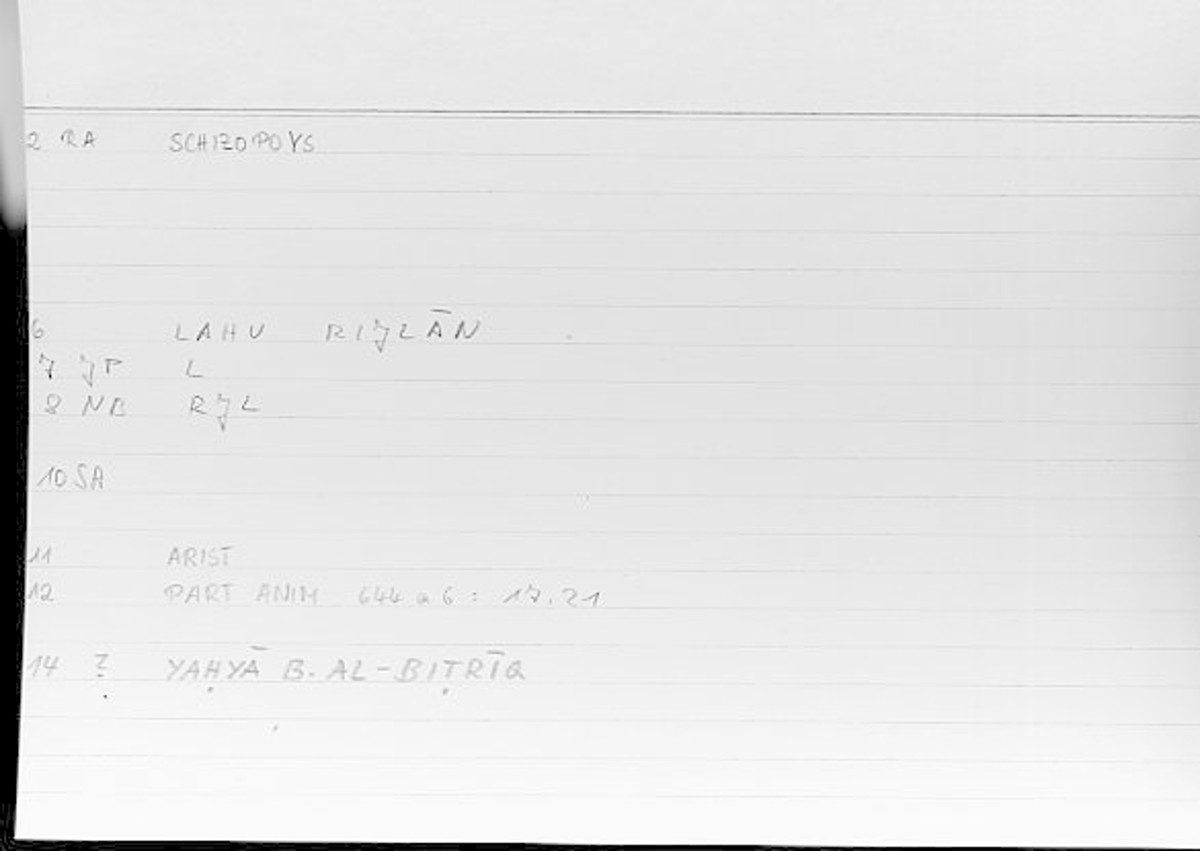 2 RA SCHIZOPOYS
6 LAHU RIJLĀN
7 JP L
8 NB RJL
10 SA
11 ARIST
12 PART ANIM 644 a 6 : 17.21
14 ? YAḤYĀ B. AL-BIṬRĪQ